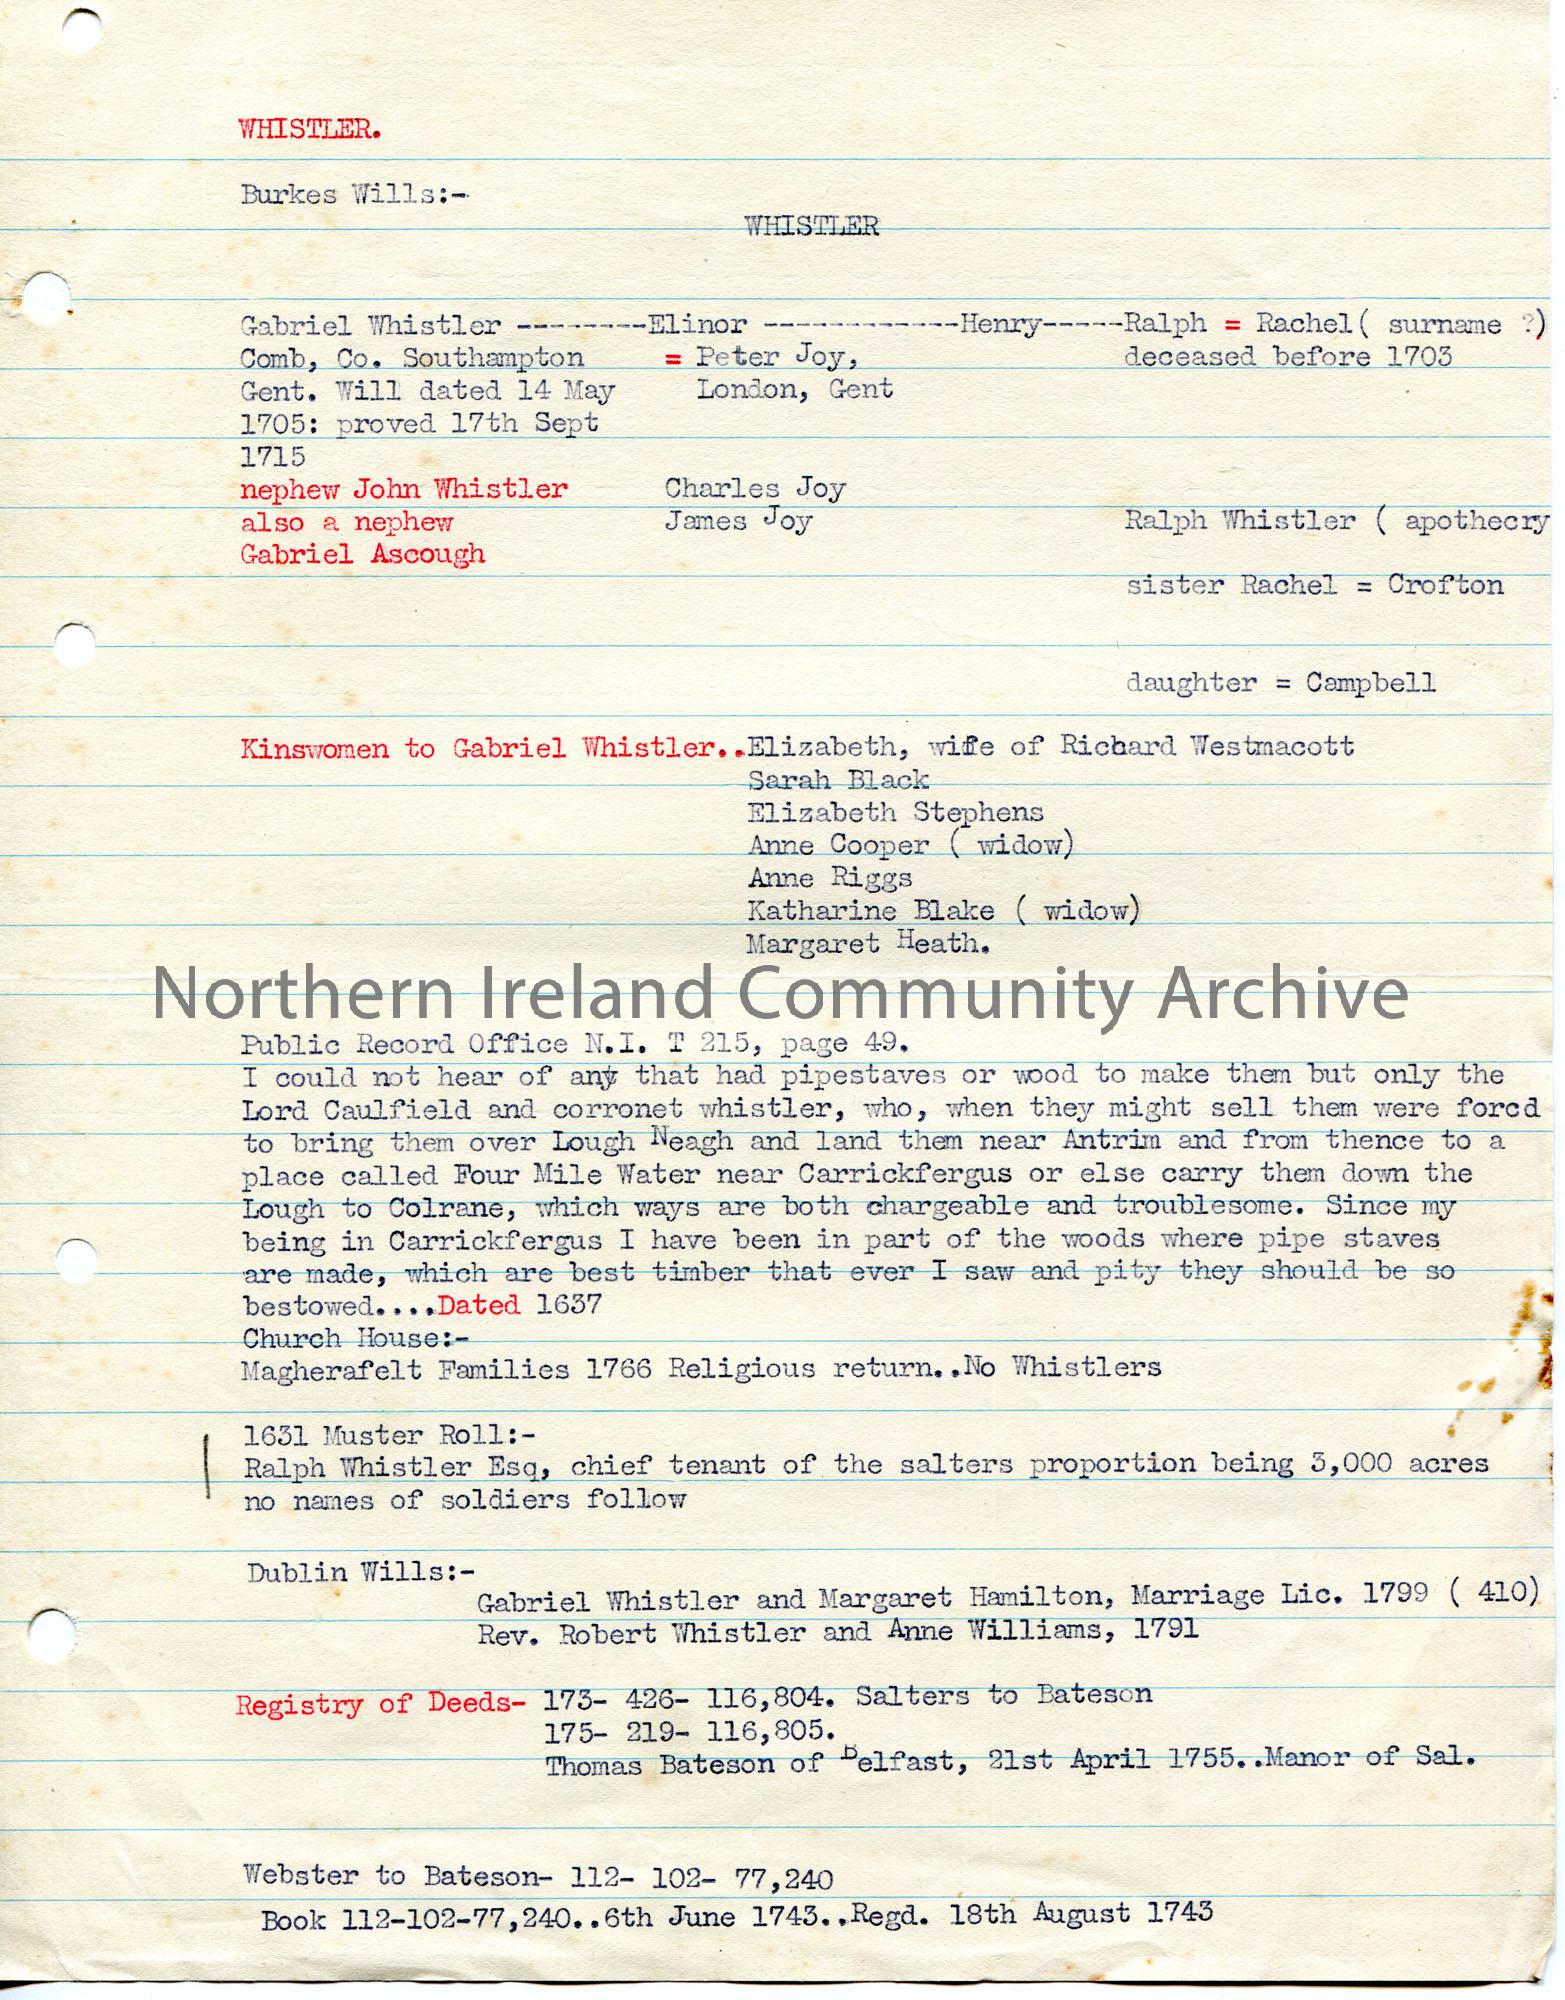 WHISTLER.
Burkes Wills:-
WHISTLER
Gabriel Whistler --------Elinor ------------Henry-----Ralph = Rachel( surname ?)
Comb, Co. Southampton = Peter Joy, deceased before 1703
Gent. Will dated 14 May London, Gent
1705: proved 17th Sept
1715
nephew John Whistler Charles Joy
also a nephew James Joy Ralph Whistler ( apothecry
Gabriel Ascough
sister Rachel = Crofton
daughter = Campbell
Kinswomen to Gabriel Whistler..Elizabeth, wife of Richard Westmacott
Sarah Black
Elizabeth Stephens
Anne Cooper ( widow)
Anne Riggs
Katharine Blake ( widow)
Margaret Heath.
Northern Ireland Community Archive
Public Record Office N.I. T 215, page 49.
I could not hear of any that had pipestaves or wood to make them but only the
Lord Caulfield and corronet whistler, who, when they might sell them were forcd
to bring them over Lough Neagh and land them near Antrim and from thence to a
place called Four Mile Water near Carrickfergus or else carry them down the
Lough to Colrane, which ways are both chargeable and troublesome. Since my
being in Carrickfergus I have been in part of the woods where pipe staves
are made, which are best timber that ever I saw and pity they should be so
bestowed....Dated 1637
Church House:-
Magherafelt Families 1766 Religious return..No Whistlers
1631 Muster Roll:-
Ralph Whistler Esq, chief tenant of the salters proportion being 3,000 acres
no names of soldiers follow
Dublin Wills:-
Gabriel Whistler and Margaret Hamilton, Marriage Lic. 1799 ( 410)
Rev. Robert Whistler and Anne Williams, 1791
Registry of Deeds- 173- 426- 116,804. Salters to Bateson
175- 219- 116,805.
Thomas Bateson of Belfast, 21st April 1755..Manor of Sal.
Webster to Bateson- 112- 102- 77,240
Book 112-102-77,240..6th June 1743..Regd. 18th August 1743